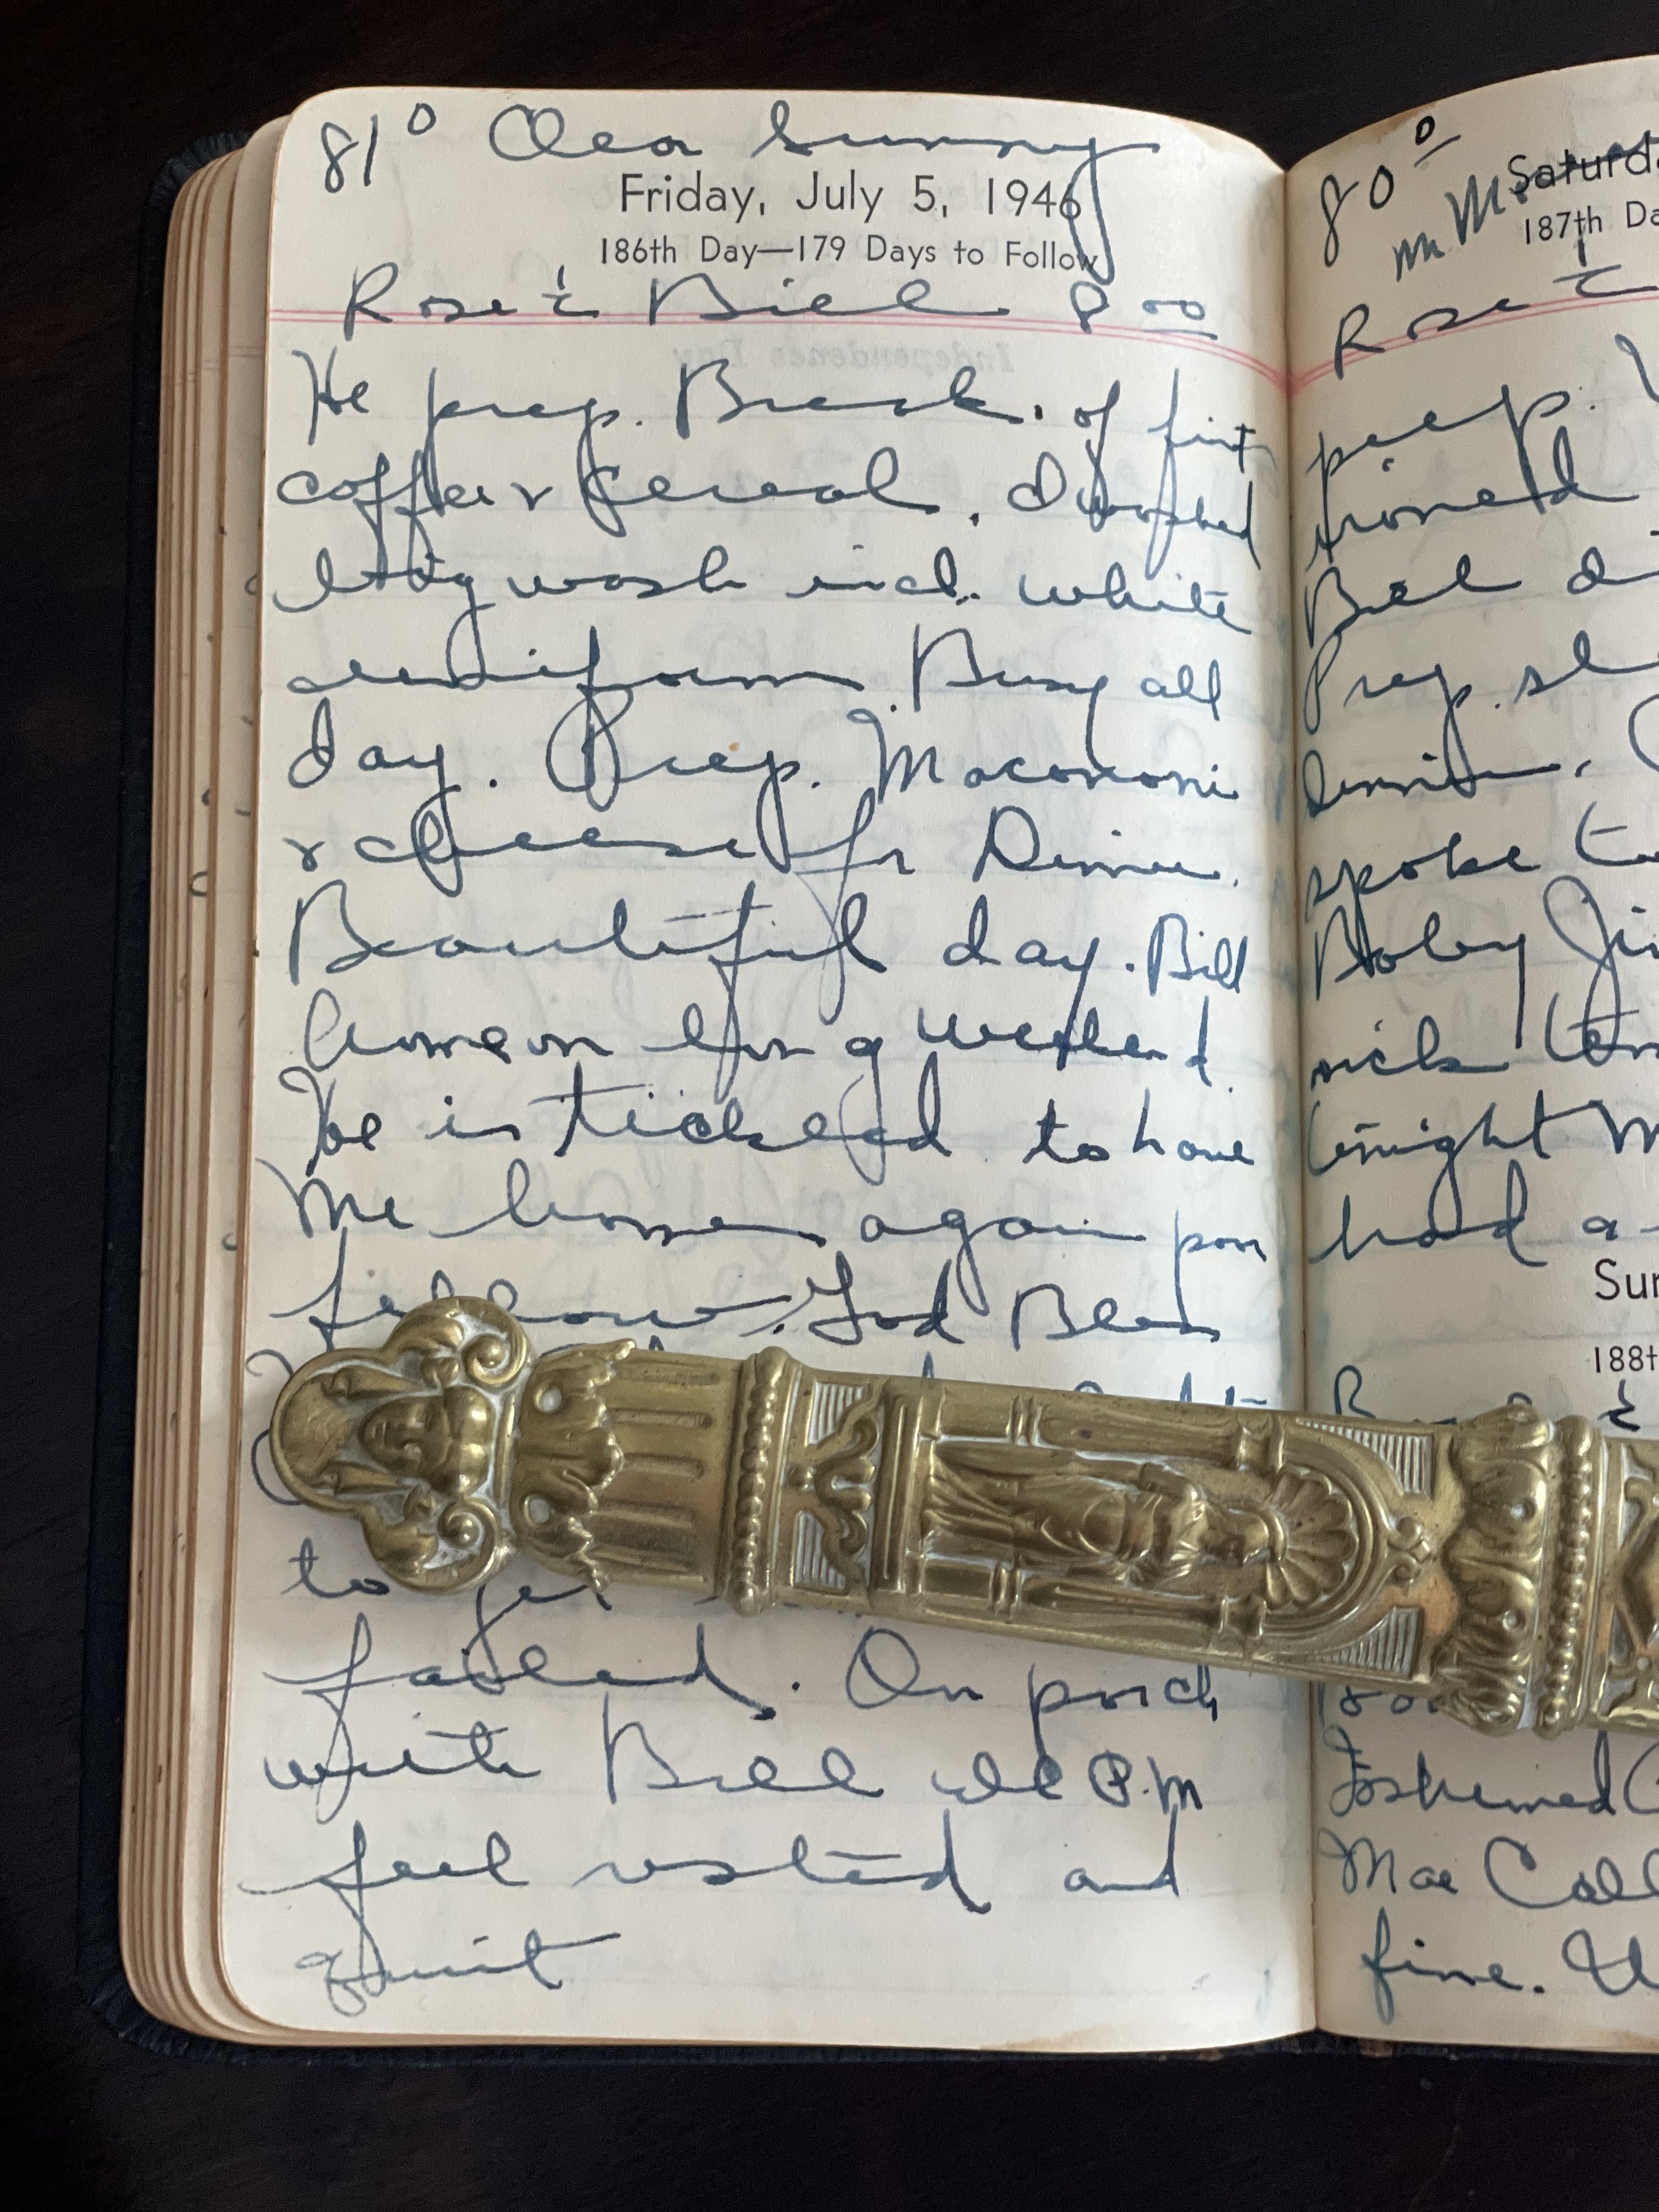 81° Clear Sunny
Friday, July 5, 1946
186th Day—179 Days to Follow
Rose & Bill 8 00
He prep. Break. of fruit
coffee & cereal. I washed
big wash incl. white
uniform. Busy all
day. Prep. Macoroni
& cheese for Dinner.
Beautiful day. Bill
home on long weekend.
He is tickeled to have
me home again poor
fellow. God Bless
to
failed. On porch
with Bill all P.M
feel rested and
quiet
80°
Saturd
187th Da
Rose &
prep.
ironed
Bill
Prep.
dinner.
spoke to
Baby
sick
tonight
had a
Sun
188t
&
Mae Call
fine.